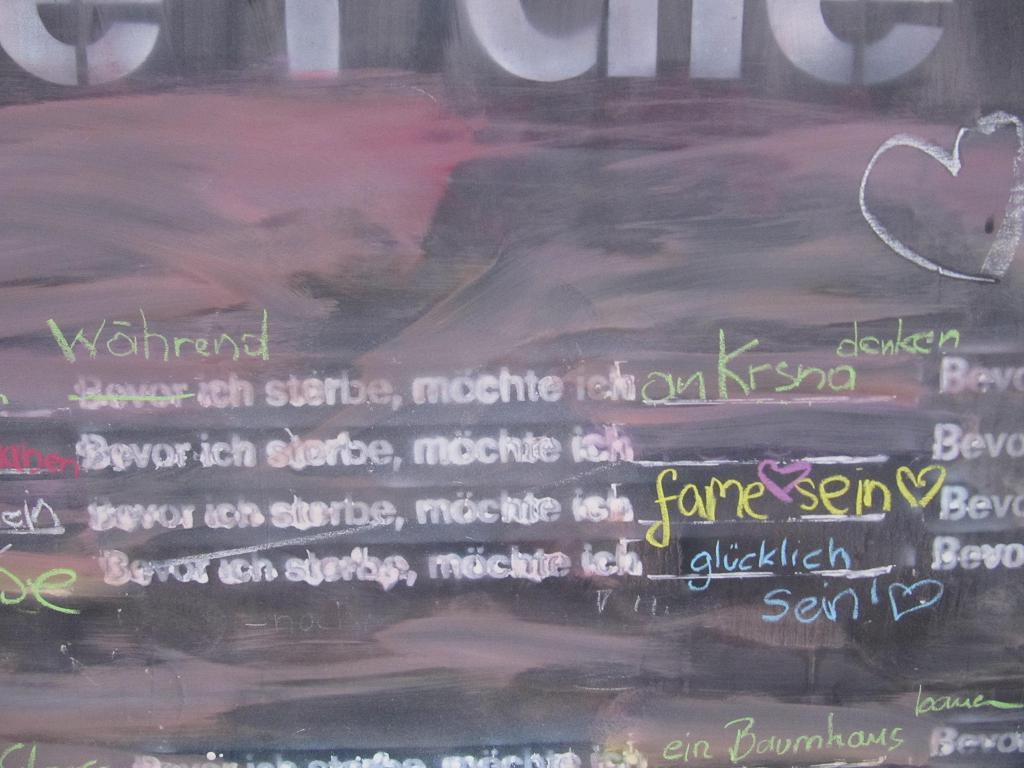 Während denken
Bevor ich sterbe, möchte ich an Krsna Bevo
Bevor ich sterbe, möchte ich Bevo
ein Bevor ich sterbe, möchte ich fame sein Bevo
Bevor ich sterbe, möchte ich glücklich Bevo
sein!
bauen
Bevor ich sterbe, möchte ich ein Baumhaus Bevo